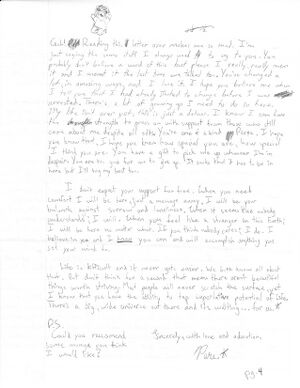 Gah! Reading this letter over makes me so mad. I'm
just saying the same stuff I always used to say to you. You
probably don't believe a word of this but please I really, really mean
it and I meant it the last time we talked too. You've changed a
lot, in amazing ways, and I like it. I hope you believe me when
I tell you that I had already started to change before I was
arrested. There's a lot of growing up I need to do in here.
My life isn't over yet, this is just a detour. I know I can have
the strength to press on with support from those who still
care about me despite all this. You're one of a kind
you know that. I hope you know how special you are, how special
I think you are. You have a gift to pick me up whenever I'm in
despair. You are to give for me to
here but I'll try my best too.
I don't expect your support for free. When you need
comfort I will be here, just a message away. I will be your
bulwark against sorrow and loneliness. When it seems like nobody
understands, I will. When you feel like a stranger on this Earth,
I will be here no matter what. If you think nobody cares, I do. I
believe in you and I know you can and will accomplish anything you
set your mind to.
Life is difficult and it never gets easier. We both know all about
that. But don't think for a second that means there aren't beautiful
things worth striving. Most people will never scratch the surface, yet
I know that you have the ability to tap potential of life.
There's a big, wide universe out there and it's waiting... for us.
P.S.
Could you recommend
some manga you think
I would like?
Sincerely, with love and adoration,
pg. 4